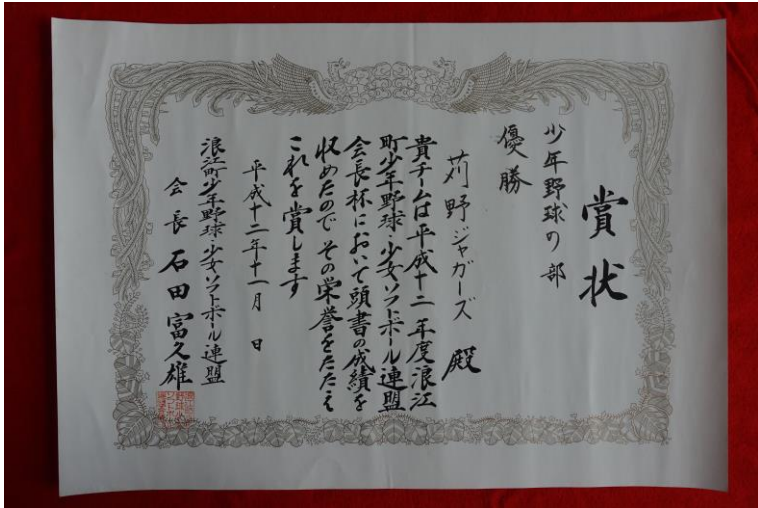 賞状
少年野球の部
優勝
苅野ジャガーズ殿
貴チームは平成十二年度浪江
町少年野球・少女ソフトボール連盟
会長杯において頭書の成績を
収めたのでその栄誉をたたえ
これを賞します
平成十二年十一月 日
浪江町少年野球・少女ソフトボール連盟
会長 石田富久雄